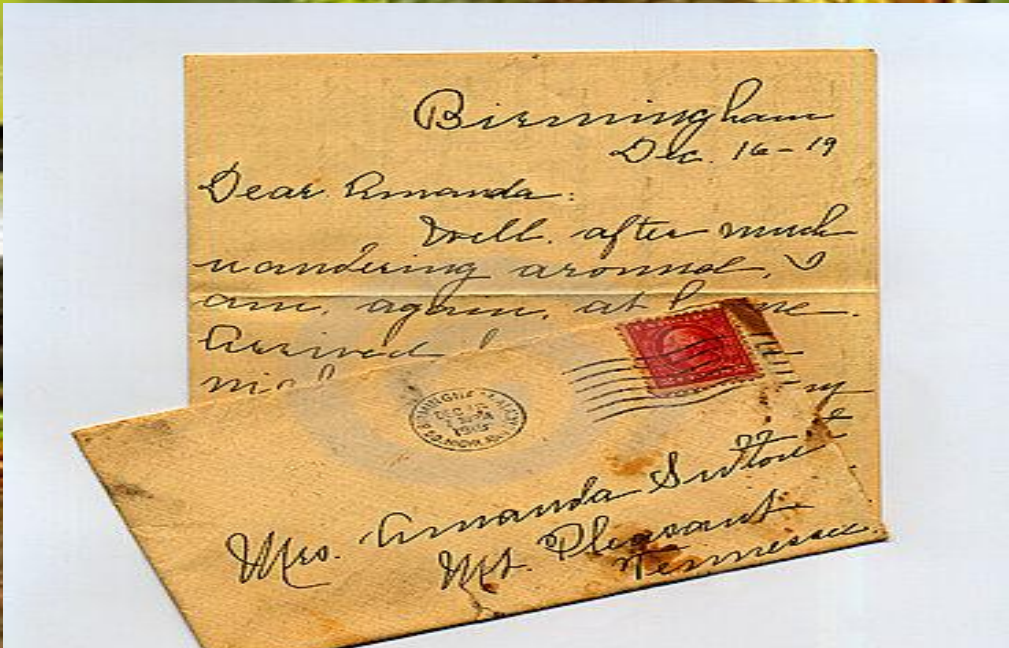 Birmingham
Dec. 16-19
Dear Amanda:
Well, after much
wandering around, I
am, again, at
Arrived
Mrs. Amanda Sutton
Mt. Pleasant
Tennessee